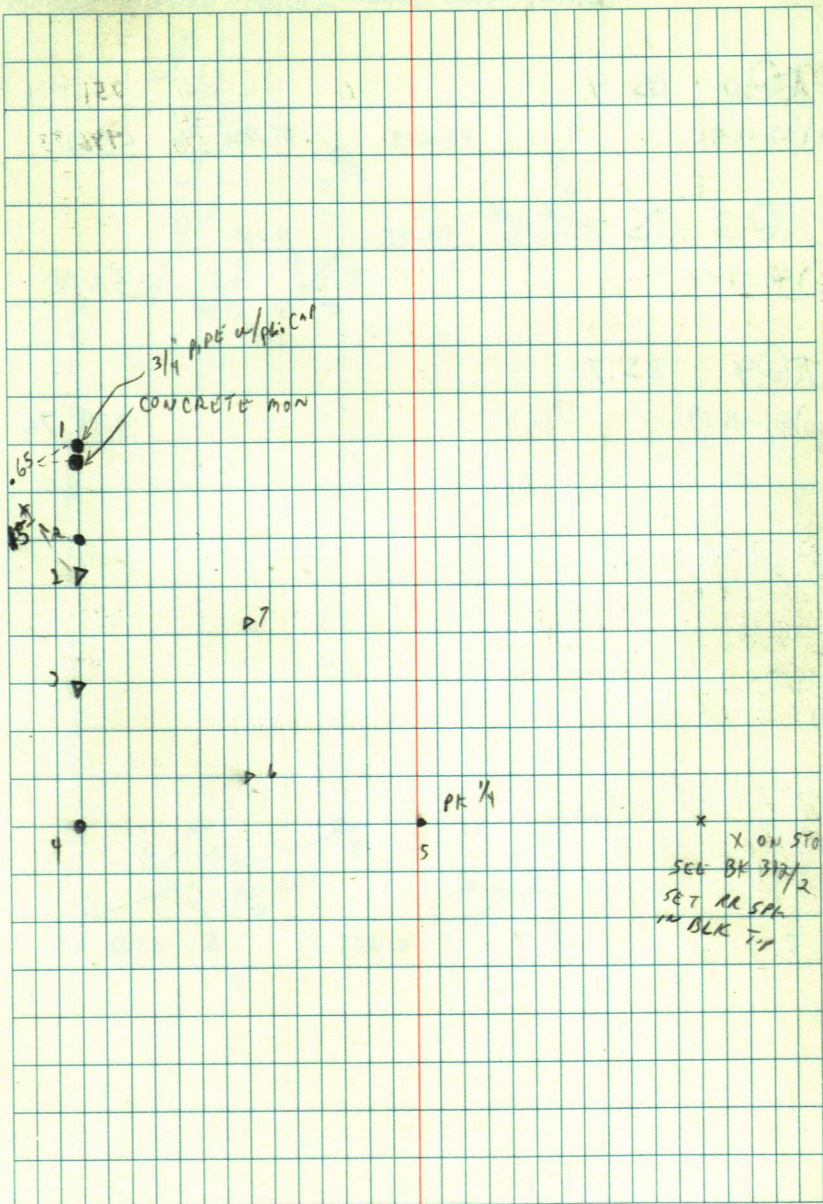 3/4" PIPE w/ CAP
CONCRETE MON
1
.65
2
7
3
6
PK 1/4
4
5
X ON STO
SEE BK 312/2
SET RR SPK
IN BLK T.P